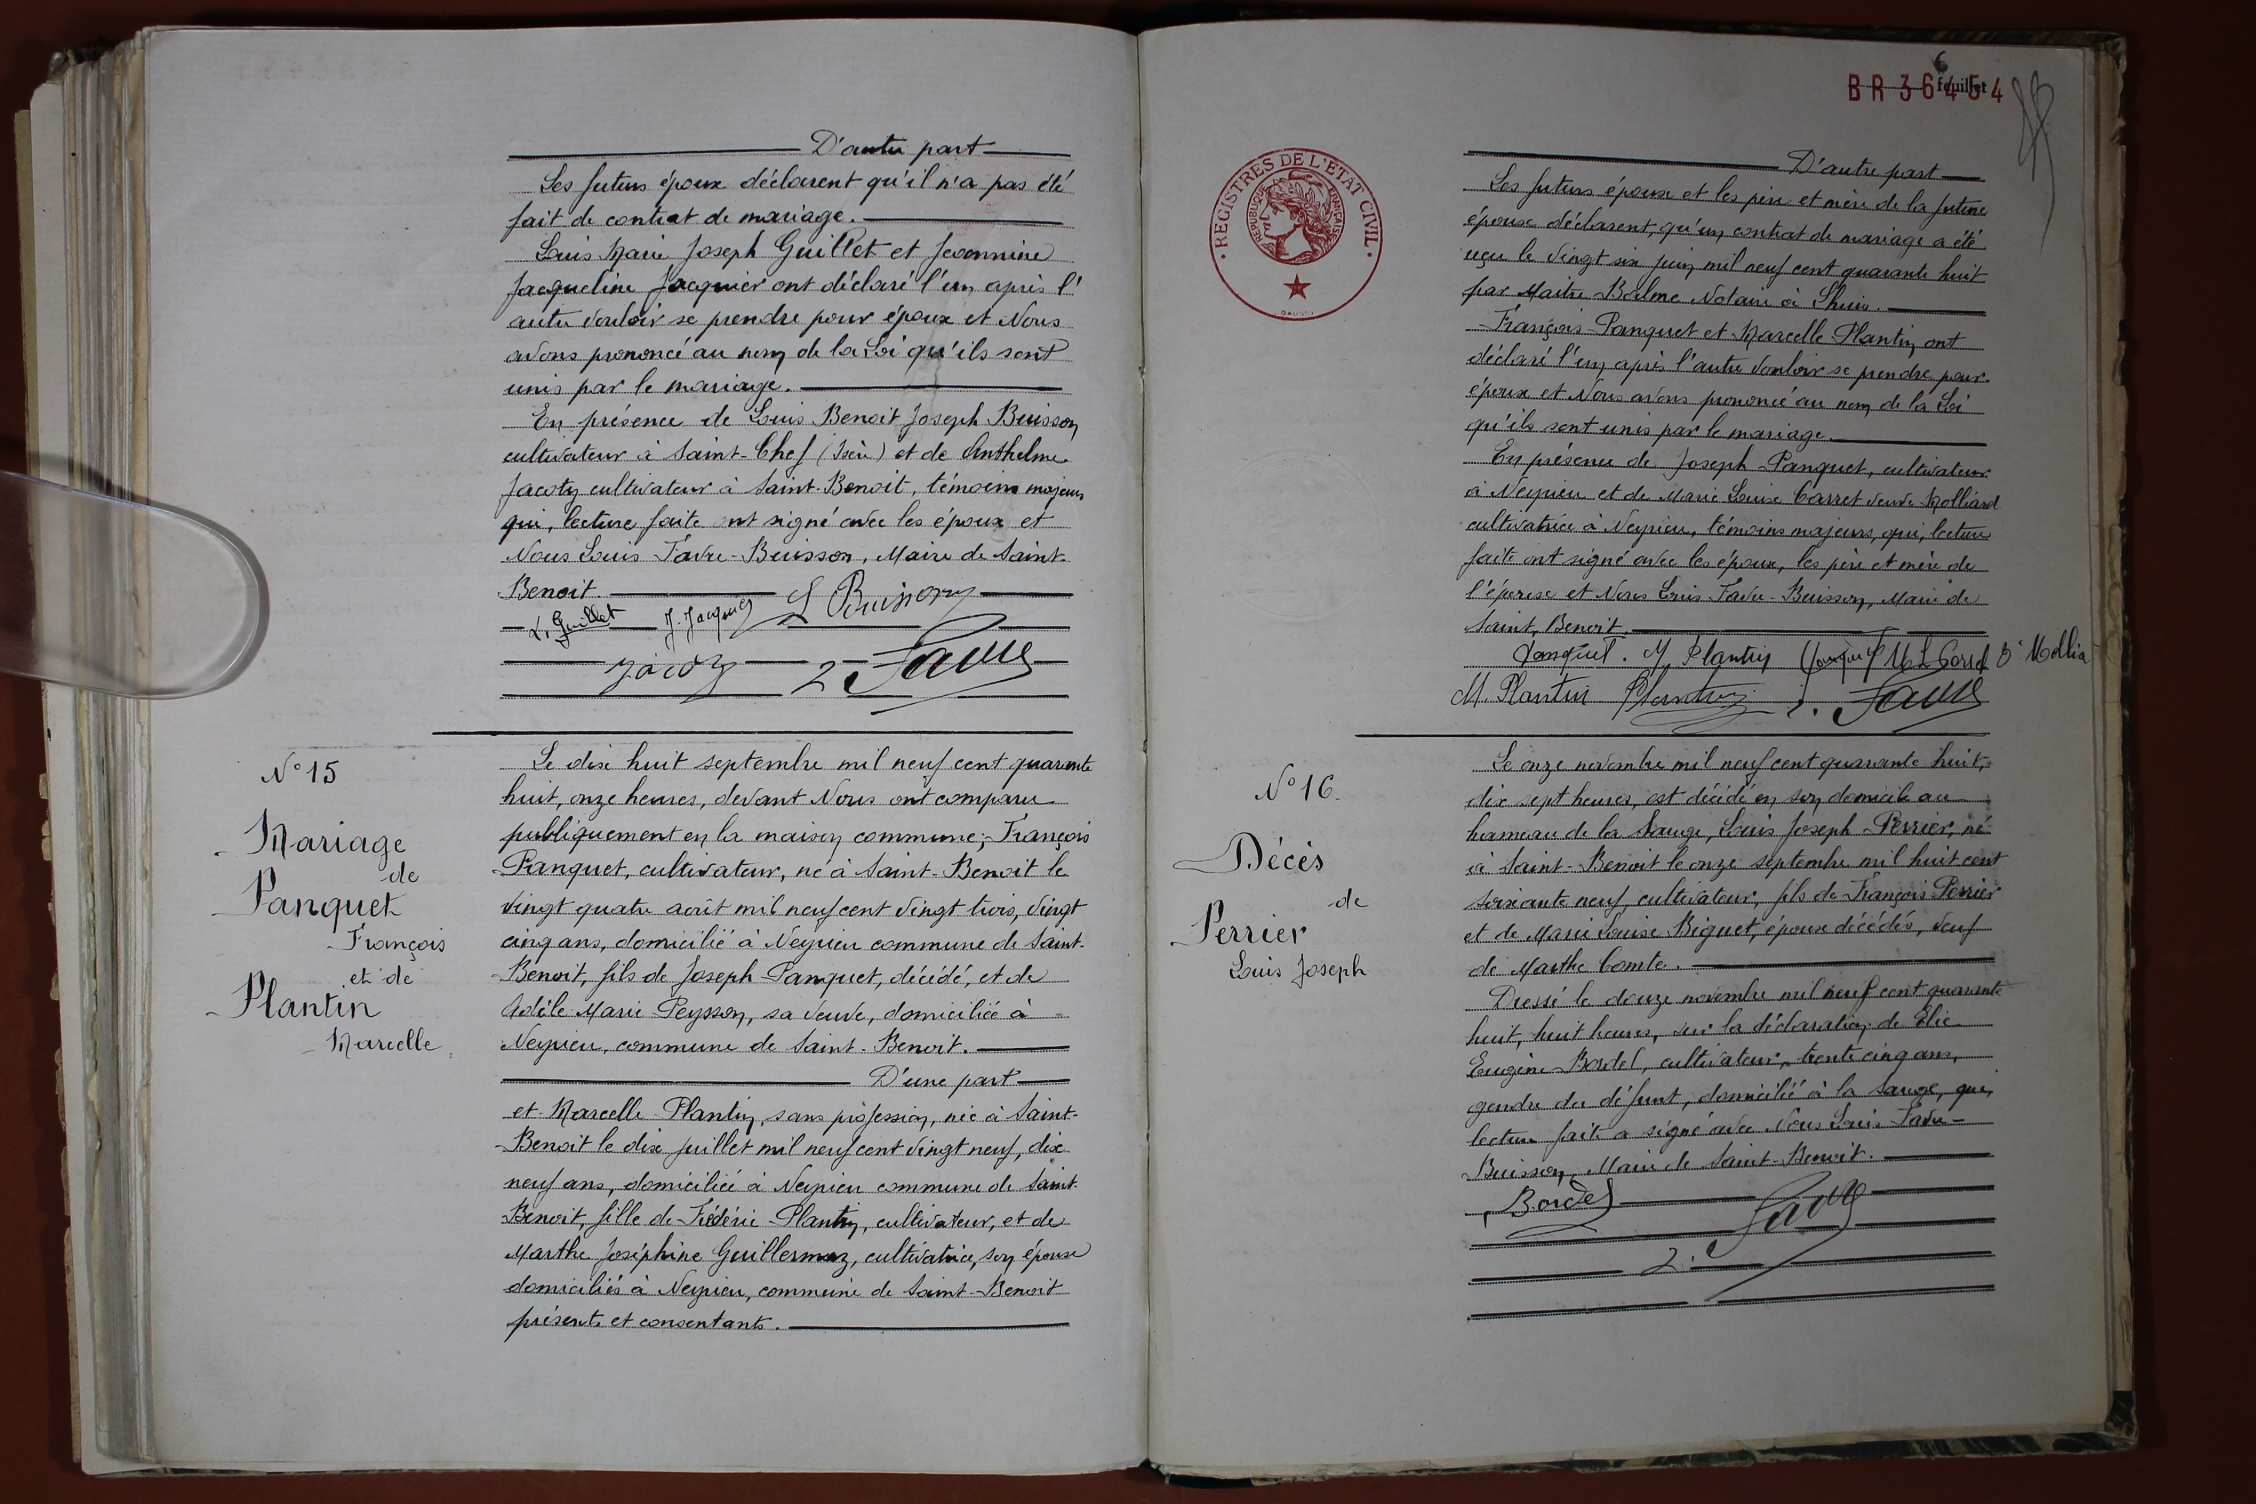 D'autre part
Les futurs époux déclarent qu'il n'a pas été
fait de contrat de mariage.
Louis Marie Joseph Guillet et Jeannine
Jacqueline Jacquier ont déclaré l'un après l'
autre vouloir se prendre pour époux et Nous
avons prononcé au nom de la Loi qu'ils sont
unis par le mariage.
En présence de Louis Benoit Joseph Buisson
cultivateur à Saint-Chef (Isère) et de Anthelme
Jacoty cultivateur à Saint-Benoit, témoins majeurs
qui, lecture faite ont signé avec les époux et
Nous Louis Favre-Buisson, Maire de Saint-
Benoit.
L. Guillet J. Jacquier L Buisson
L Favre
N° 15
Mariage
de
Panquet
François
et de
Plantin
Marcelle
Le dix huit septembre mil neuf cent quarante
huit, onze heures, devant Nous ont comparu
publiquement en la maison commune; François
Panquet, cultivateur, né à Saint-Benoit le
vingt quatre août mil neuf cent vingt trois, vingt
cinq ans, domicilié à Neyrieu commune de Saint-
Benoit, fils de Joseph Panquet, décédé, et de
Adèle Marie Peysson, sa veuve, domiciliée à
Neyrieu, commune de Saint-Benoit.
D'une part
et Marcelle Plantin, sans profession, née à Saint-
Benoit le dix juillet mil neuf cent vingt neuf, dix
neuf ans, domiciliée à Neyrieu commune de Saint-
Benoit, fille de Frédéric Plantin, cultivateur, et de
Marthe Joséphine Guillermoz, cultivatrice, son épouse
domiciliés à Neyrieu, commune de Saint-Benoit
présents et consentants.
6
feuillet
BR 36454
REGISTRES DE L'ETAT CIVIL
REPUBLIQUE FRANÇAISE
D'autre part
Les futurs époux et les père et mère de la future
épouse déclarent, qu'un contrat de mariage a été
reçu le vingt six juin mil neuf cent quarante huit
par Maître Balme Notaire à Lhuis.
François Panquet et Marcelle Plantin ont
déclaré l'un après l'autre vouloir se prendre pour
époux et Nous avons prononcé au nom de la Loi
qu'ils sont unis par le mariage.
En présence de Joseph Panquet, cultivateur
à Neyrieu et de Marie Louise Carret veuve Molliard
cultivatrice à Neyrieu, témoins majeurs, qui, lecture
faite ont signé avec les époux, les père et mère de
l'épouse et Nous Louis Favre-Buisson, Maire de
Saint, Benoit.
Panquet. M Plantin Panquet
M. Plantin Plantin L. Favre
N° 16.
Décès
de
Perrier
Louis Joseph
Le onze novembre mil neuf cent quarante huit,
dix sept heures, est décédé en son domicile au
hameau de la Sauge, Louis Joseph Perrier, né
à Saint-Benoit le onze septembre mil huit cent
soixante neuf, cultivateur, fils de François Perrier
et de Marie Louise Biguet, époux décédés, veuf
de Marthe Comte.
Dressé le douze novembre mil neuf cent quarante
huit, huit heures, sur la déclaration de Elie
Eugène Bordel, cultivateur, trente cinq ans,
gendre du défunt, domicilié à la Sauge, qui,
lecture faite a signé avec Nous Louis Favre-
Buisson, Maire de Saint-Benoit.
Bordel
L. Favre